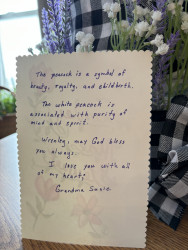 The peacock is a symbol of
beauty, royalty, and childbirth.
The white peacock is
associated with purity of
mind and spirit.
Wrenley, may God bless
you always.
I love you with all
of my heart!
Grandma Susie